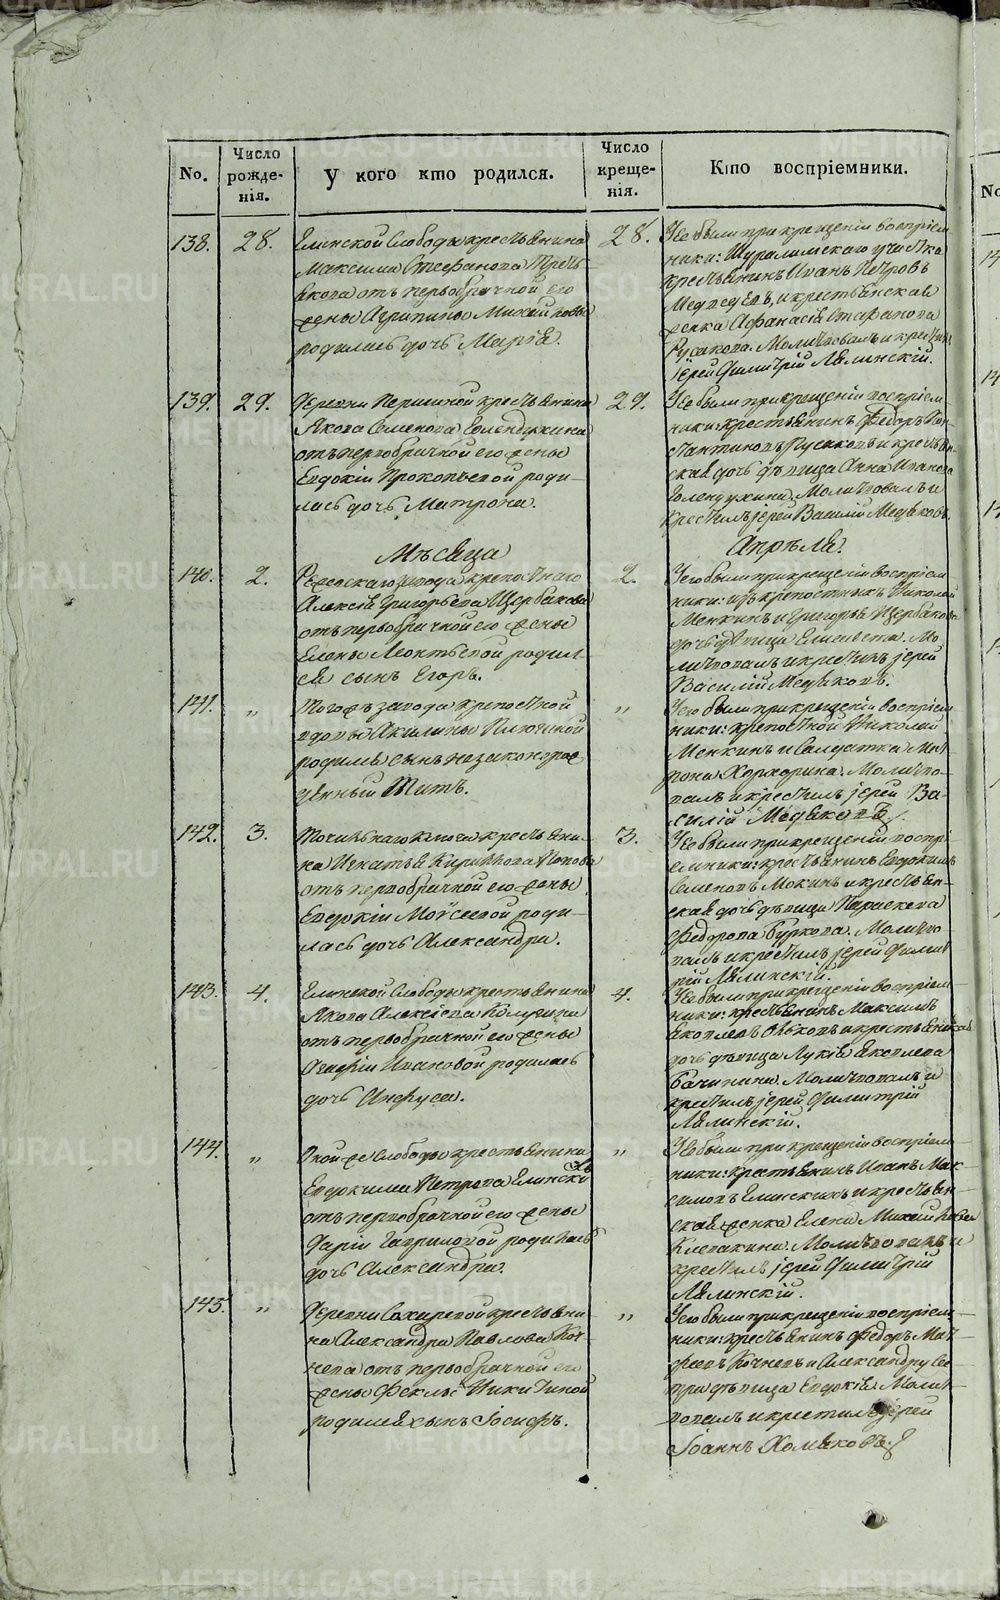 No.
Число рожде-нія.
У кого кто родился.
Число креще-нія.
Кто воспріемники.
138.
28.
Елинской Слободы крестьянина
Максима Стефанова
отъ первобрачной его
жены Агрипины
родилась дочь Марія.
28.
У ее были при крещеніи воспріем
ники: участка
крестьянинъ Иванъ Петровъ
Медведевъ, и крестьянская
женка Афанасія Стафанова
Русакова. Молитвовалъ и
Іерей Филитрій Лялинскій.
139.
29.
Деревни крестьянина
Якова Семенова Голендухина
отъ первобрачной его жены
Евдокіи Прокопьевой роди-
лась дочь Матрона.
29.
У ее были при крещеніи воспріем
ники: крестьянинъ Федоръ Кон-
стантиновъ Русаковъ и крестьян-
ская дочь дѣвица Анна Иванова
Голендухина. Молитвовалъ и
крестилъ іерей Василій Медяковъ.
Мѣсяца
Апрѣля.
140.
2.
Режевскаго завода крепостнаго
Алексія Григорьева Щербакова
отъ первобрачной его жены
Елены Леонтьевой родил
ся сынъ Егоръ.
2.
У его были при крещеніи воспріем
ники: изъ крепостныхъ Николай
Менкинъ и Григорья Щербакова
дочь дѣвица Елисавета. Мо-
литвовалъ и крестилъ іерей
Василій Медяковъ.
141.
„
Тогожъ завода крепостной
вдовы Акилины
родился сынъ незаконорож
денный Титъ.
„
У его были при крещеніи воспріем
ники: крепостной Николай
Менкинъ и Солдатка Мат
рона. Молитво-
валъ и крестилъ іерей Ва-
силій Медяковъ.
142.
3.
Точильнаго Ключа крестьяни-
на Игнатья Кирилова Попова
отъ первобрачной его жены
Евдокіи Моисеевой роди-
лась дочь Александра.
3.
У ее были при крещеніи воспрі-
емники: крестьянинъ Евдокимъ
Семеновъ Мокинъ и крестьян-
ская дочь дѣвица Параскева
Федорова Буркова. Молитво
валъ и крестилъ іерей Филит
рій Лялинскій.
143.
4.
Елинской Слободы крестьянина
Якова Алексіева
отъ первобрачной его жены
Агафіи Ивановой родилась
дочь Анфуса.
4.
У ее были при крещеніи воспріем-
ники: крестьянинъ Максимъ
Яковлевъ и крестьянская
дочь дѣвица Лукія Яковлева
Бачинина. Молитвовалъ и
крестилъ іерей Филитрій
Лялинскій.
144.
„
Оной же слободы крестьянина
Евдокима Петрова Елински
хъ
отъ первобрачной его жены
Даріи Гавриловой родилась
дочь Александра.
„
У ее были при крещеніи воспріем-
ники: крестьянинъ Иванъ Мак-
симовъ Елинскихъ и крестьян-
ская женка Елена
Клепакина. Молитвовалъ и
крестилъ іерей Филитрій
Лялинскій.
145.
„
Деревни Сохаревой крестьяни-
на Александра Павлова Коч-
нева отъ первобрачной его
жены Феклы Никитиной
родился сынъ Іосифъ.
„
У его были при крещеніи воспріем-
ники: крестьянинъ Федоръ Мат-
феевъ Кочневъ и Александру се-
стра дѣвица Евдокія. Молит-
вовалъ и крестилъ іерей
Іоаннъ Хомяковъ.